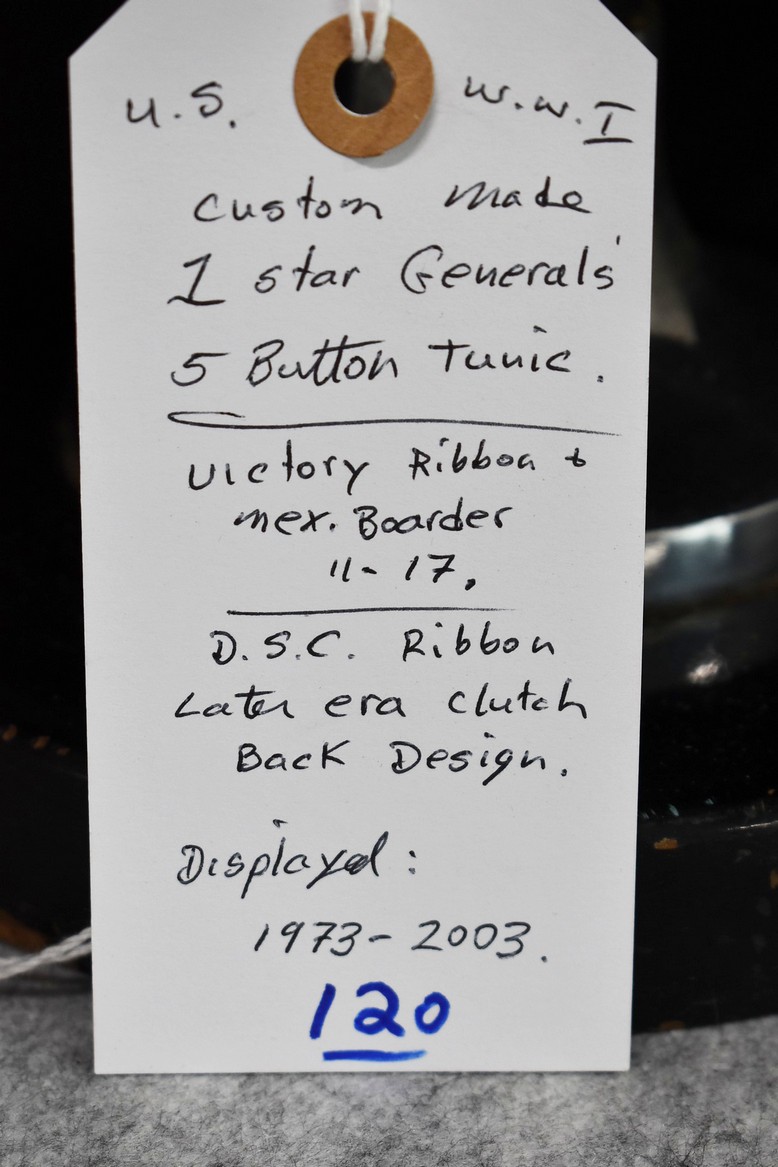 U.S. W.W.I
Custom Made
1 star Generals'
5 Button Tunic.
Victory Ribbon &
Mex. Boarder
11-17.
D.S.C. Ribbon
Later era Clutch
Back Design.
Displayed:
1973-2003.
120